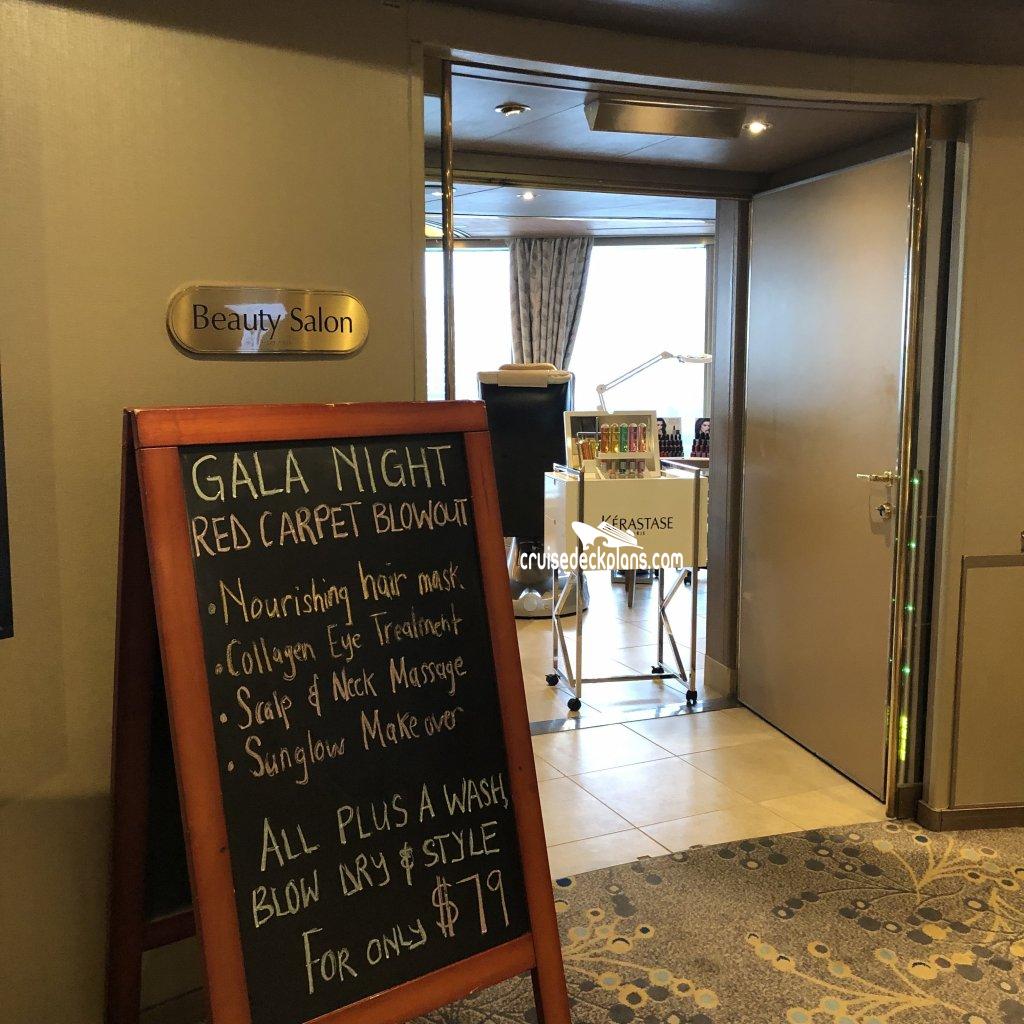 Beauty Salon
GALA NIGHT
RED CARPET BLOWOUT
• Nourishing hair mask.
• Collagen Eye Treatment
• Scalp & Neck Massage
• Sunglow Make over
ALL PLUS A WASH,
BLOW DRY & STYLE
FOR ONLY $79
KÉRASTASE
cruisedeckplans.com